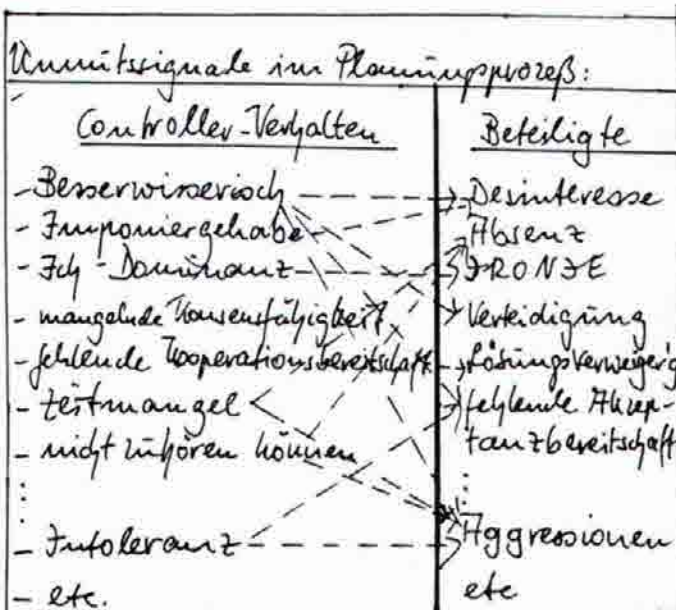 Unmutssignale im Planungsprozeß:
Controller-Verhalten
- Besserwisserisch
- Imponiergehabe
- Ich-Dominanz
- mangelnde Konsensfähigkeit
- fehlende Kooperationsbereitschaft
- Zeitmangel
- nicht zuhören können
- Intoleranz
- etc.
Beteiligte
Desinteresse
Absenz
IRONIE
Verteidigung
Lösungsverweiger'g
fehlende Akzep-
tanzbereitschaft
Aggressionen
etc